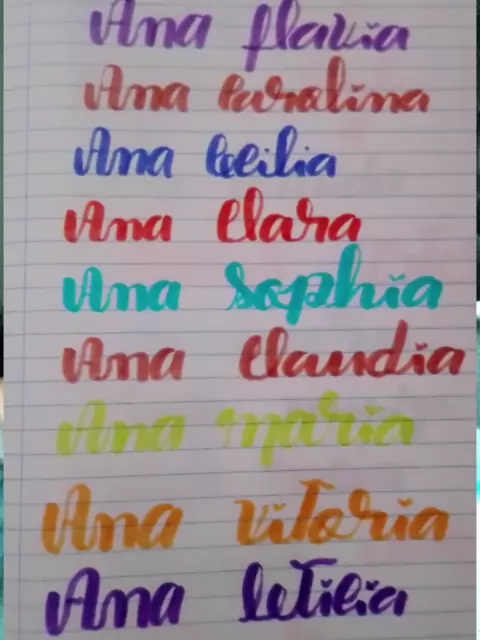 Ana flavia
Ana Carolina
Ana Cecilia
Ana Clara
Ana Sophia
Ana Claudia
Ana maria
Ana vitoria
Ana leticia